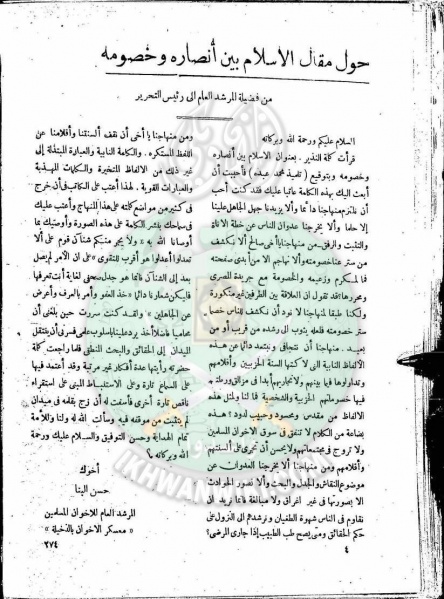 حول مقال الاسلام بين أنصاره وخصومه
من فضيلة المرشد العام الى رئيس التحرير
السلام عليكم ورحمة الله وبركاته
قرأت كلمة النذير. بعنوان الاسلام بين أنصاره
وخصومه وبتوقيع (تلميذ محمد عبده) فأحببت أن
أبعث اليك بهذه الكلمة عاتبا عليك فقد كنت أحب
أن نلتزم منهاجنا دائما وألا يزيدنا جهل الجاهل علينا
إلا حلما وألا يخرجنا عدوان الناس عن خطة الأناة
والتثبت والرفق. من منهاجنا يا أخى صالح ألا نكشف
من ستر عنا خصومته وألا نهاجم الا من أبدى صفحته
فما لمسكرم وزعيمه والخصومة مع جريدة المصرى
ومحررها؛ قد تقول ان العلاقة بين الطرفين غير منكورة
ولكنا طبقا لمنهاجنا لا نود أن نكشف للناس خصما
ستر خصومته فلعله يثوب الى رشده من قريب أو من
بعيد. منهاجنا أن نتجافى ونبتعد دائما عن هذه
الألفاظ النابية التى لاكتها ألسنة الحزبيين وأقلامهم
وتداولوها فيما بينهم ولا نجاريهم أبدا فى مزالق ورطتهم
فيها خصوماتهم الحزبية والشخصية فما لنا ولمثل هذه
الألفاظ من مقدس ومحسود وحبيب لدود؟ هذه
بضاعة من الكلام لا تنفق فى سوق الاخوان المسلمين
ولا تروج فى مجتمعاتهم ولا يحسن أن تجرى على ألسنتهم
وأقلامهم ومن منهاجنا ألا يخرجنا العدوان عن
موضوع النقاش والجدل والبحث وألا نصور الحوادث
الا بصورتها فى غير اغراق ولا مبالغة فانما نريد أن
نقاوم فى الناس شهوة الطغيان ونرشدهم الى النزول على
حكم الحقائق ومتى يصح طب الطبيب إذا جارى المرضى؟
٤
ومن منهاجنا يا أخى أن نقف ألسنتنا وأقلامنا عن
اللفظ المستكره. والكلمة النابية والعبارة المبتذلة إلى
غير ذلك من الالفاظ المتخيرة والكلمات المهذبة
والعبارات القوية. لهذا أعتب على الكاتب فى أن خرج
فى كثير من مواضع كلمته على هذا المنهاج وأعتب عليك
فى سماحك بنشر الكلمة على هذه الصورة وأوصيك بما
أوصانا الله به «ولا يجرمنكم شنآن قوم على ألا
تعدلوا اعدلوا هو أقرب للتقوى» على أن الأمر لم يصل
بعد إلى الشنآن فانما هو جدل صحفى لغاية أنت تعرفها
فليكن شعارنا دائما «خذ العفو وأمر بالعرف وأعرض
عن الجاهلين» ولقد كنت سررت حين بلغنى أن
محاميا فاضلا أخذ يرد علينا بأسلوب علمى فسرنى أن ينتقل
الميدان إلى الحقائق والبحث المنطقى فلما راجعت كلمة
حضرته رأيتها عدة أفكار غير مرتبة وقد أعتمد فيها
على السماع تارة وعلى الاستنباط المبنى على استقراء
ناقص تارة أخرى فأسفت له أن زج بقلمه فى ميدان
لم يتثبت من موقفه فيه وسألت الله له ولنا وللأمة
تمام الهداية وحسن التوفيق والسلام عليك ورحمة
الله وبركاته
أخوك
حسن البنا
المرشد العام للاخوان المسلمين
« معسكر الاخوان بالدخيلة »
٢٧٤
IKHWAN